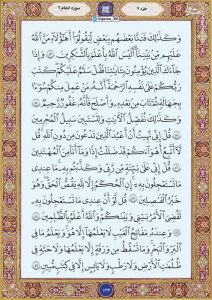 جزء ٧
سورة الانعام ٦
وَكَذَٰلِكَ فَتَنَّا بَعْضَهُم بِبَعْضٍ لِّيَقُولُوٓا۟ أَهَٰٓؤُلَآءِ مَنَّ ٱللَّهُ
عَلَيْهِم مِّنۢ بَيْنِنَآ أَلَيْسَ ٱللَّهُ بِأَعْلَمَ بِٱلشَّٰكِرِينَ ٥٣ وَإِذَا
جَآءَكَ ٱلَّذِينَ يُؤْمِنُونَ بِـَٔايَٰتِنَا فَقُلْ سَلَٰمٌ عَلَيْكُمْ كَتَبَ
رَبُّكُمْ عَلَىٰ نَفْسِهِ ٱلرَّحْمَةَ أَنَّهُۥ مَنْ عَمِلَ مِنكُمْ سُوٓءًۢا
بِجَهَٰلَةٍ ثُمَّ تَابَ مِنۢ بَعْدِهِۦ وَأَصْلَحَ فَأَنَّهُۥ غَفُورٌ رَّحِيمٌ ٥٤
وَكَذَٰلِكَ نُفَصِّلُ ٱلْـَٔايَٰتِ وَلِتَسْتَبِينَ سَبِيلُ ٱلْمُجْرِمِينَ ٥٥
قُلْ إِنِّى نُهِيتُ أَنْ أَعْبُدَ ٱلَّذِينَ تَدْعُونَ مِن دُونِ ٱللَّهِ قُل
لَّآ أَتَّبِعُ أَهْوَآءَكُمْ قَدْ ضَلَلْتُ إِذًا وَمَآ أَنَا۠ مِنَ ٱلْمُهْتَدِينَ
٥٦ قُلْ إِنِّى عَلَىٰ بَيِّنَةٍ مِّن رَّبِّى وَكَذَّبْتُم بِهِۦ مَا عِندِى
مَا تَسْتَعْجِلُونَ بِهِۦٓ إِنِ ٱلْحُكْمُ إِلَّا لِلَّهِ يَقُصُّ ٱلْحَقَّ وَهُوَ
خَيْرُ ٱلْفَٰصِلِينَ ٥٧ قُل لَّوْ أَنَّ عِندِى مَا تَسْتَعْجِلُونَ بِهِۦ
لَقُضِىَ ٱلْأَمْرُ بَيْنِى وَبَيْنَكُمْ وَٱللَّهُ أَعْلَمُ بِٱلظَّٰلِمِينَ ٥٨
وَعِندَهُۥ مَفَاتِحُ ٱلْغَيْبِ لَا يَعْلَمُهَآ إِلَّا هُوَ وَيَعْلَمُ مَا فِى
ٱلْبَرِّ وَٱلْبَحْرِ وَمَا تَسْقُطُ مِن وَرَقَةٍ إِلَّا يَعْلَمُهَا وَلَا حَبَّةٍ فِى
ظُلُمَٰتِ ٱلْأَرْضِ وَلَا رَطْبٍ وَلَا يَابِسٍ إِلَّا فِى كِتَٰبٍ مُّبِينٍ ٥٩
١٣٤